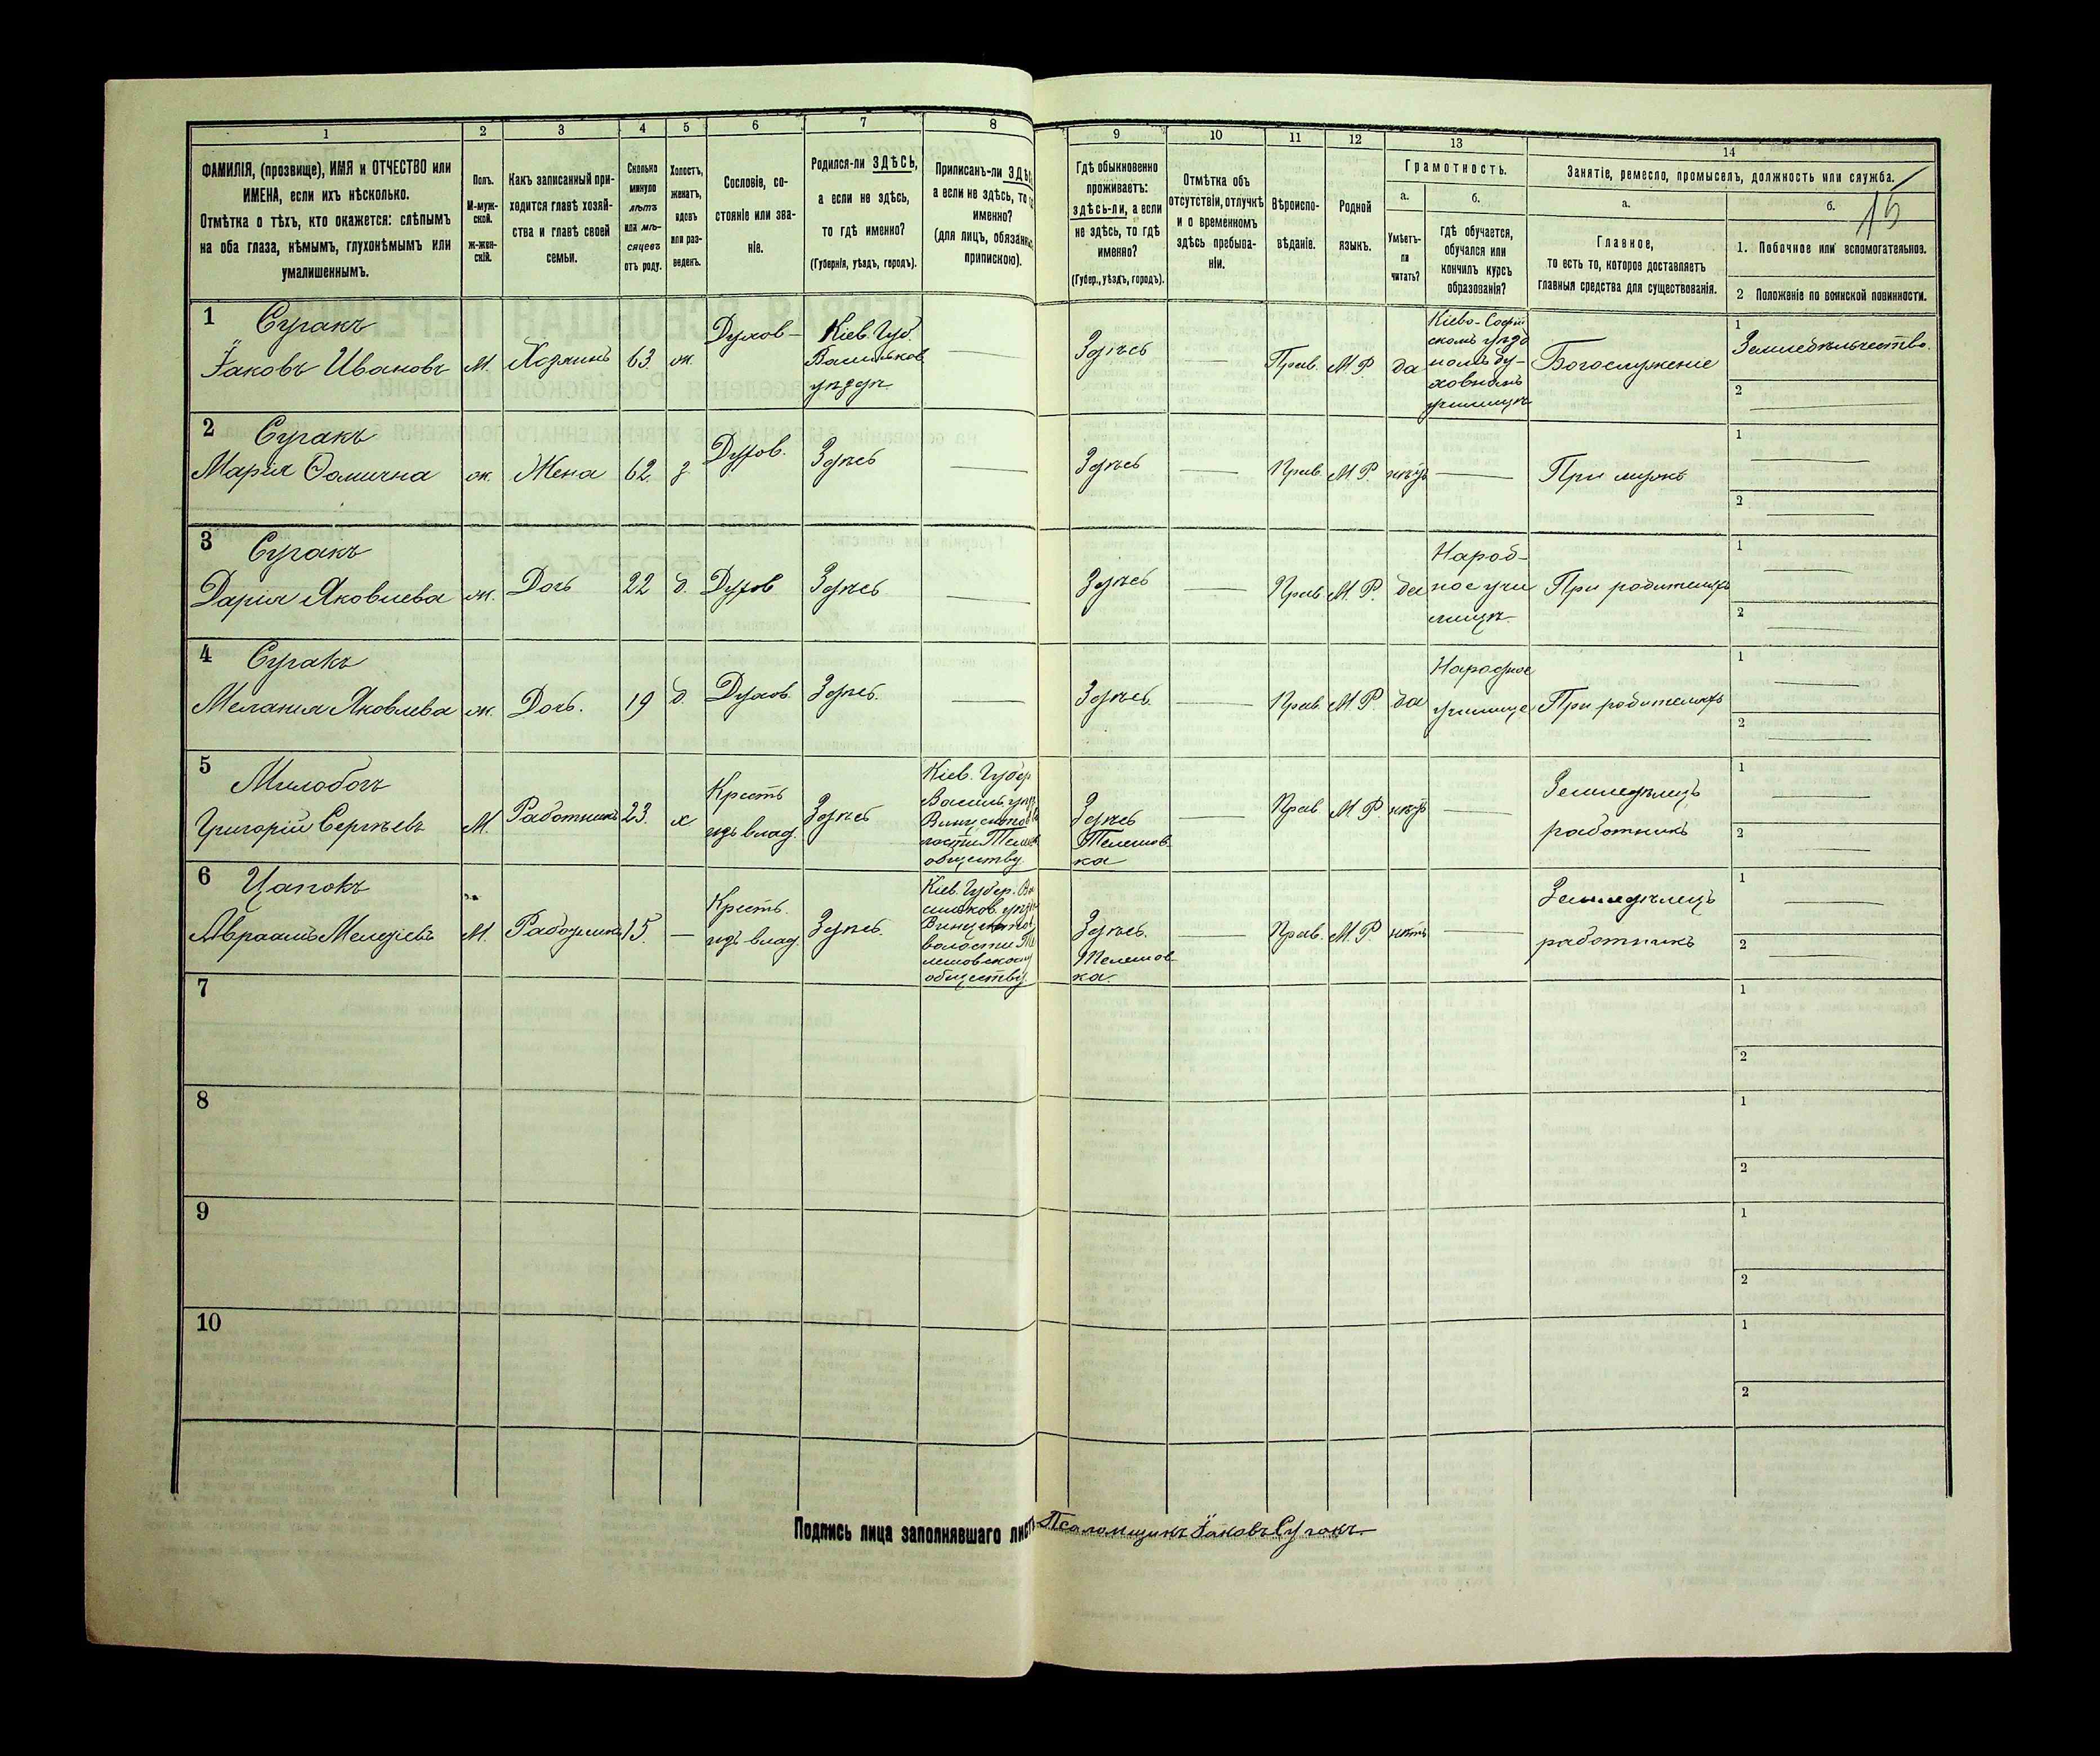 1 2 3 4 5 6 7 8 9 10 11 12 13 14
ФАМИЛІЯ, (прозвище), ИМЯ и ОТЧЕСТВО или
ИМЕНА, если ихъ нѣсколько.
Отмѣтка о тѣхъ, кто окажется: слѣпымъ
на оба глаза, нѣмымъ, глухонѣмымъ или
умалишеннымъ.
Полъ.
М-муж-
ской.
ж-жен-
скій.
Какъ записанный при-
ходится главѣ хозяй-
ства и главѣ своей
семьи.
Сколько
минуло
лѣтъ
или мѣ-
сяцевъ
отъ роду.
Холостъ,
женатъ,
вдовъ
или раз-
веденъ.
Сословіе, со-
стояніе или зва-
ніе.
Родился-ли ЗДѢСЬ,
а если не здѣсь,
то гдѣ именно?
(Губернія, уѣздъ, городъ).
Приписанъ-ли
а если не здѣсь, то
именно?
(для лицъ,
припискою).
Гдѣ обыкновенно
проживаетъ:
здѣсь-ли, а если
не здѣсь, то гдѣ
именно?
(Губер., уѣздъ, городъ).
Отмѣтка объ
отсутствіи, отлучкѣ
и о временномъ
здѣсь пребыва-
ніи.
Вѣроиспо-
вѣданіе.
Родной
языкъ.
Грамотность.
а.
Умѣетъ-
ли
читать?
б.
гдѣ обучается,
обучался или
кончилъ курсъ
образованія?
Занятіе, ремесло, промыселъ, должность или служба.
а.
Главное,
то есть то, которое доставляетъ
главныя средства для существованія.
б.
15
1. Побочное или вспомогательное.
2 Положеніе по воинской повинности.
1
Сугакъ
Іаковъ Ивановъ
М.
Хозяинъ
63.
ж.
Духов-
Кіев. Губ.
Васильков
уѣздѣ
Здѣсь
Прав.
М.Р.
да
Кіево-Софій
скомъ уѣзд
номъ ду-
ховномъ
училищѣ
Богослуженіе
1
Земледѣльчество.
2
2
Сугакъ
Марія Ѳомична
ж.
Жена
62.
з
Духов.
Здѣсь
Здѣсь
Прав.
М.Р.
нѣтъ
При мужѣ
1
2
3
Сугакъ
Дарія Яковлева
ж.
Дочь
22
д.
Духов
Здѣсь
Здѣсь
Прав
М.Р.
да
Народ-
ное учи
лищѣ
При родителяхъ
1
2
4
Сугакъ
Меланія Яковлева
ж.
Дочь.
19
д.
Духов
Здѣсь.
Здѣсь.
Прав.
М.Р.
да
Народное
училище
При родителяхъ
1
2
5
Милобогъ
Григорій Сергѣевъ
М.
Работникъ
23.
х
Крестъ
изъ влад.
Здѣсь
Кіев. Губер
Василь. уѣз
обществу
Здѣсь
Телешов
ка
Прав
М.Р.
нѣтъ
Земледѣлецъ
работникъ
1
2
6
Цапокъ
Авраамъ
М.
15.
Крестъ.
изъ влад.
Здѣсь.
Кіев. Губер. Ва
сильков. уѣзд
волости Те
лешовском
обществу.
Здѣсь.
Телешов
ка.
Прав.
М.Р.
нѣтъ
Земледѣлецъ
работникъ
1
2
7
1
2
8
1
2
9
1
2
10
1
2
Подпись лица заполнявшаго листъ Псаломщикъ Іаковъ Сугакъ